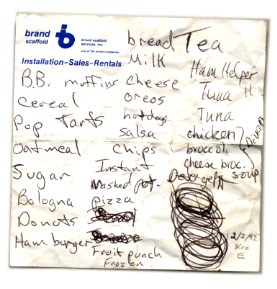 brand
scaffold
brand scaffold
services, inc.
Installation-Sales-Rentals
B.B. muffins
cereal
Pop Tarts
Oatmeal
Sugar
Bologna
Donuts
Hamburger
bread
Milk
cheese
oreos
hotdogs
salsa
chips
Instant
Mashed pot.
pizza
Fruit punch
Frozen
Tea
Ham Helper
Tuna H
Tuna
chicken
broccoli
cheese broc.
soup
Detergent